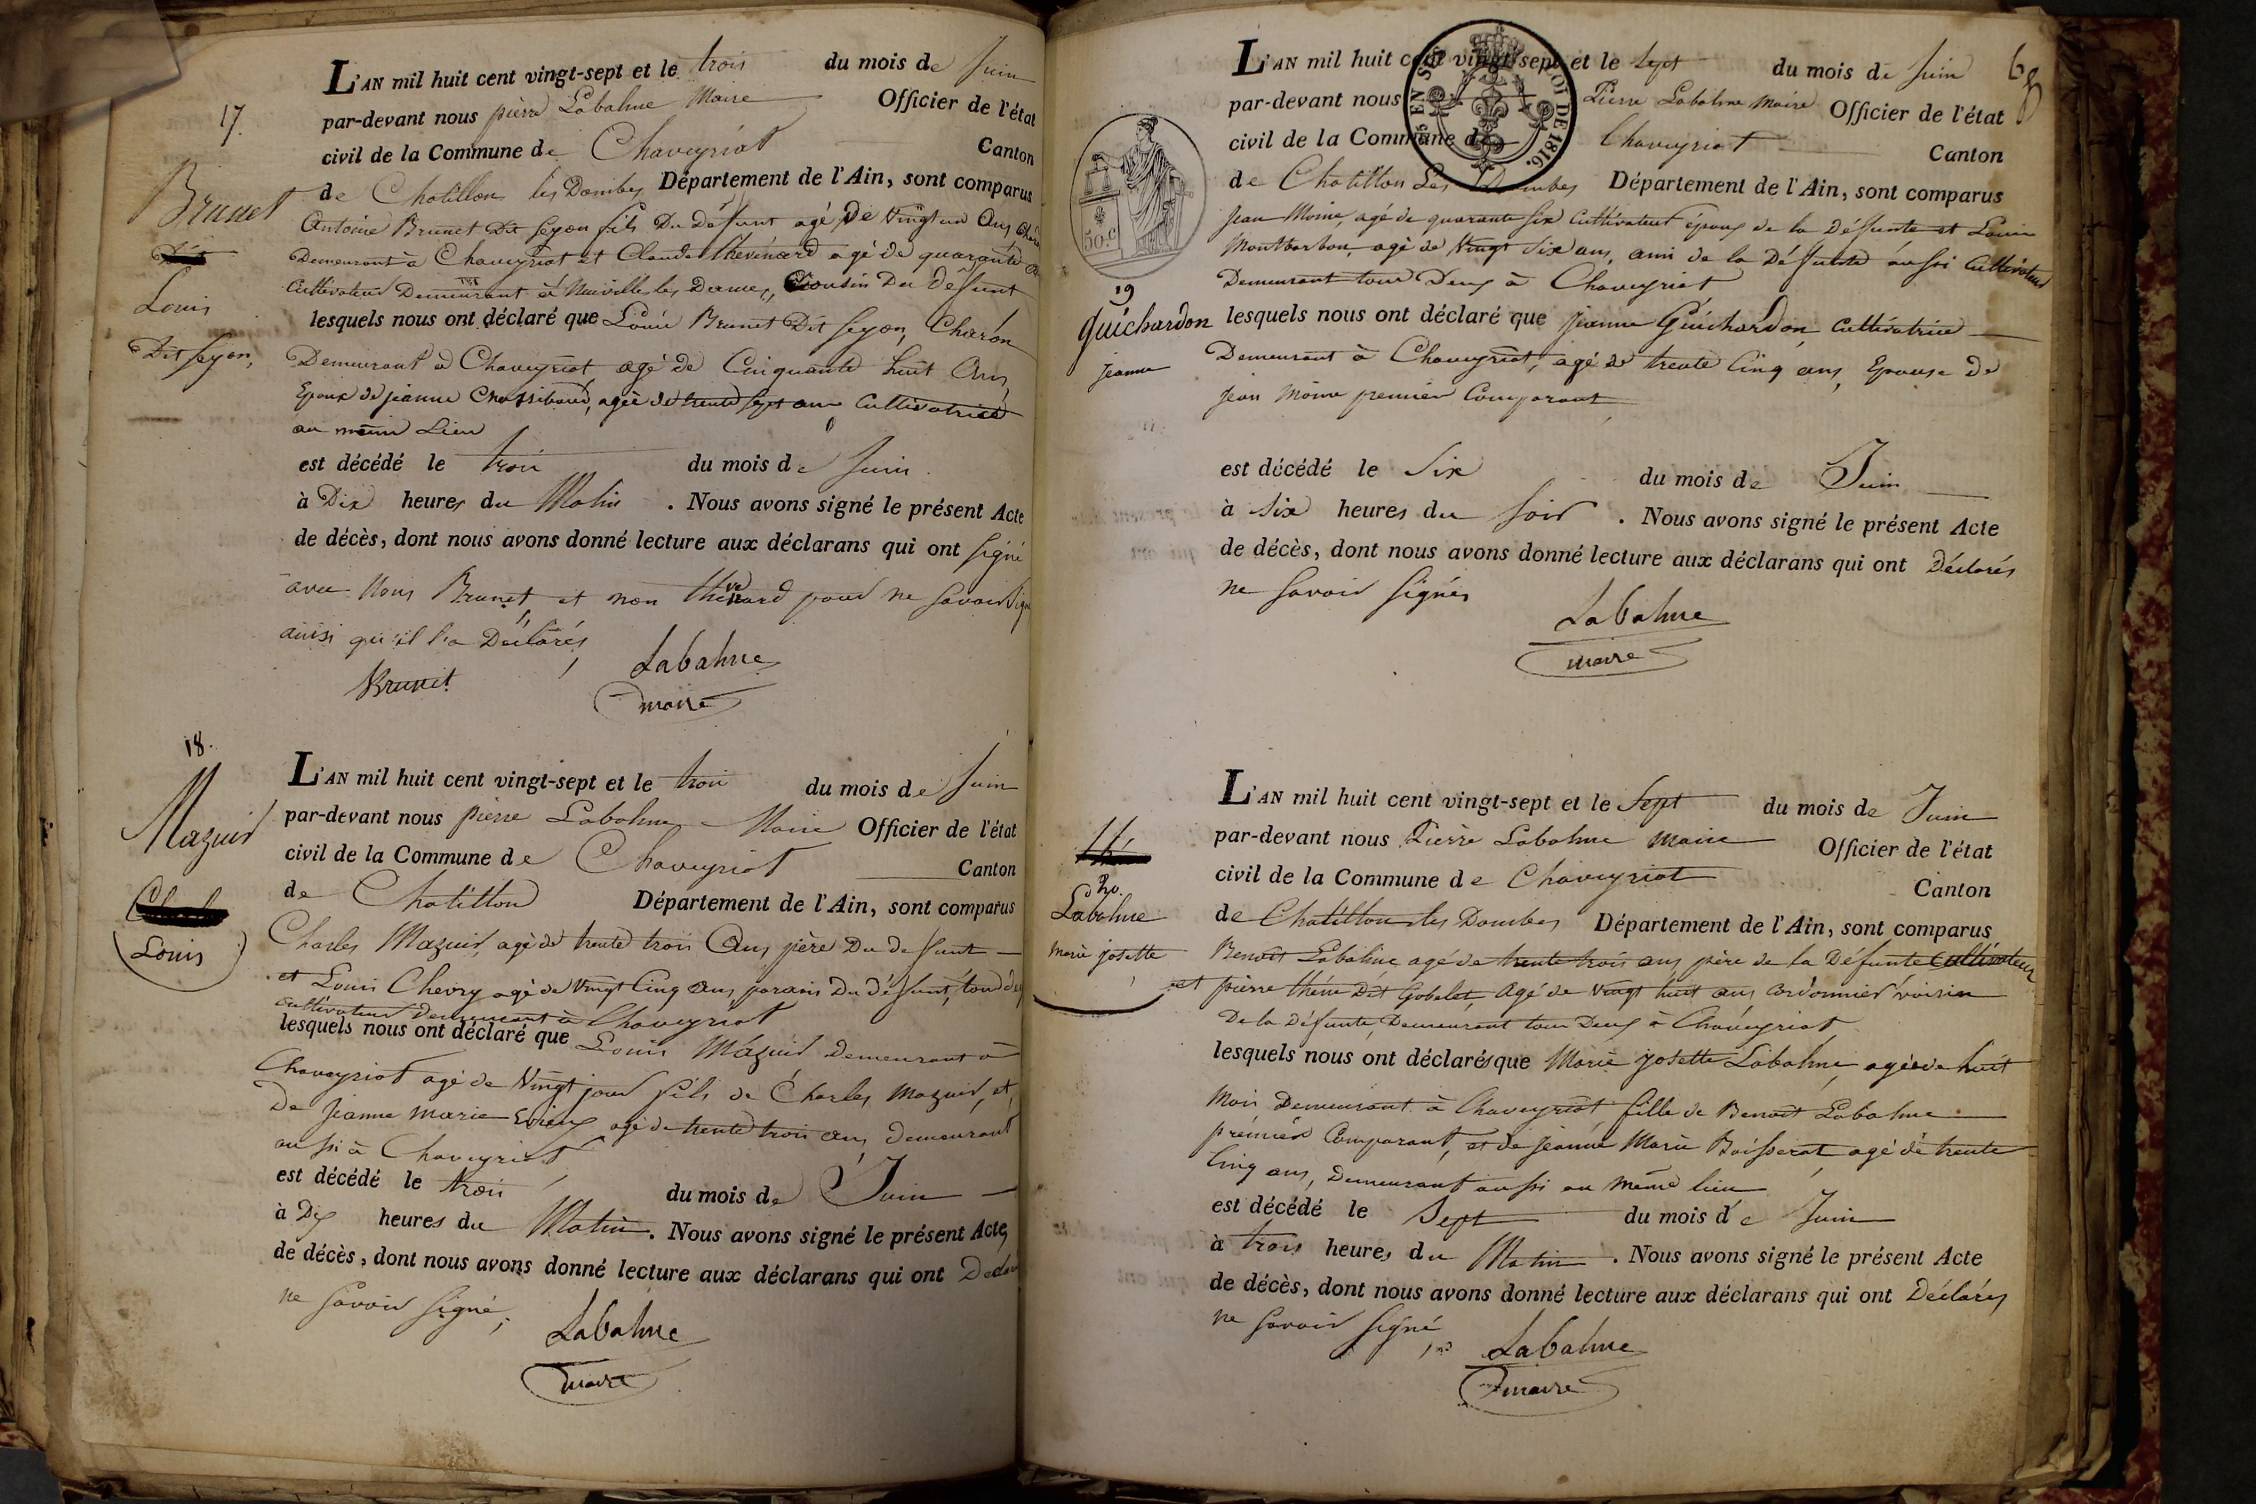 17.
Brunet
Louis
Dit Seyon,
L'AN mil huit cent vingt-sept et le trois du mois de Juin
par-devant nous pièrre Labalme Maire Officier de l'état
civil de la Commune de Chaveyriat Canton
de Chatillon les Dombes Département de l'Ain, sont comparus
Antoine Brunet Dit Seyon fils Du défunt agé De Vingt un Ans
Demeurant à Chaveyriat et Claude thévenard agé de quarante
Cultivateur Demeurant à Neuville les Dames, Cousin Du défunt
lesquels nous ont déclaré que Louis Brunet Dit Seyon, Charon
Demeurant à Chaveyriat agé de Cinquante huit Ans,
Epoux de jeanne agée de trente sept ans Cultivatrice
au même Lieu
est décédé le trois du mois de Juin
à Dix heures du Matin . Nous avons signé le présent Acte
de décès, dont nous avons donné lecture aux déclarans qui ont signé
avec Nous Brunet, et non thévenard pour ne Savoir Signé
ainsi qu'il l'a Déclarés,
Brunet Labalme
maire
18.
Mazuir
Louis
L'AN mil huit cent vingt-sept et le trois du mois de Juin
par-devant nous pièrre Labalme Maire Officier de l'état
civil de la Commune de Chaveyriat Canton
de Chatillon Département de l'Ain, sont comparus
Charles Mazuir, agé de trente trois Ans père Du defunt
et Louis Chevry agé de Vingt Cinq ans parain Du défunt, tous deux
Cultivateur Demeurant à Chaveyriat
lesquels nous ont déclaré que Louis Mazuir Demeurant à
Chaveyriat agé de Vingt jour fils de Charles Mazuir, et
De Jeanne marie agé de trente trois ans, demeurant
aussi à Chaveyriat
est décédé le trois du mois de Juin
à Dix heures du Matin . Nous avons signé le présent Acte,
de décès, dont nous avons donné lecture aux déclarans qui ont
ne Savoir signé,
Labalme
maire
68
50.c
LOI DE 1816.
19
Guichardon
jeanne
L'AN mil huit cent vingt-sept et le Sept du mois de Juin
par-devant nous Pierre Labalme Maire Officier de l'état
civil de la Commune de Chaveyriat Canton
de Chatillon Les Dombes Département de l'Ain, sont comparus
Jean Moine, agé de quarante six Cultivateur époux de la Défunte et Louis
Montbarbon, agé de Vingt Six ans, ami de la Défunte aussi Cultivateur
Demeurant tous Deux à Chaveyriat
lesquels nous ont déclaré que jeanne Guichardon, Cultivatrice
Demeurant à Chaveyriat, agé de trente Cinq ans, Epouse De
jean Moine premier Comparant,
est décédé le Six du mois de Juin
à Six heures du Soir . Nous avons signé le présent Acte
de décès, dont nous avons donné lecture aux déclarans qui ont Déclarés
ne Savoir Signés
Labalme
maire
20.
Labalme
marie josette
L'AN mil huit cent vingt-sept et le Sept du mois de Juin
par-devant nous Pièrre Labalme Maire Officier de l'état
civil de la Commune de Chaveyriat Canton
de Chatillon les Dombes Département de l'Ain, sont comparus
Benoît Labalme agé de trente trois ans, père de la Défunte Cultivateur
et pièrre théve Dit Gobelet, Agé de Vingt huit ans, Cordonnier voisin
De la Défunte, Demeurant tous Deux à Chaveyriat
lesquels nous ont déclarés que Marie josette Labalme, agée de huit
Mois Demeurant à Chaveyriat fille de Benoît Labalme
prémier Comparant, et de Jeanne Marie Boisserat, agé de trente
Cinq ans, Demeurant aussi au Même lieu
est décédé le Sept du mois de Juin
à trois heures du Matin . Nous avons signé le présent Acte
de décès, dont nous avons donné lecture aux déclarans qui ont Déclarés
ne Savoir Signé,
Labalme
maire